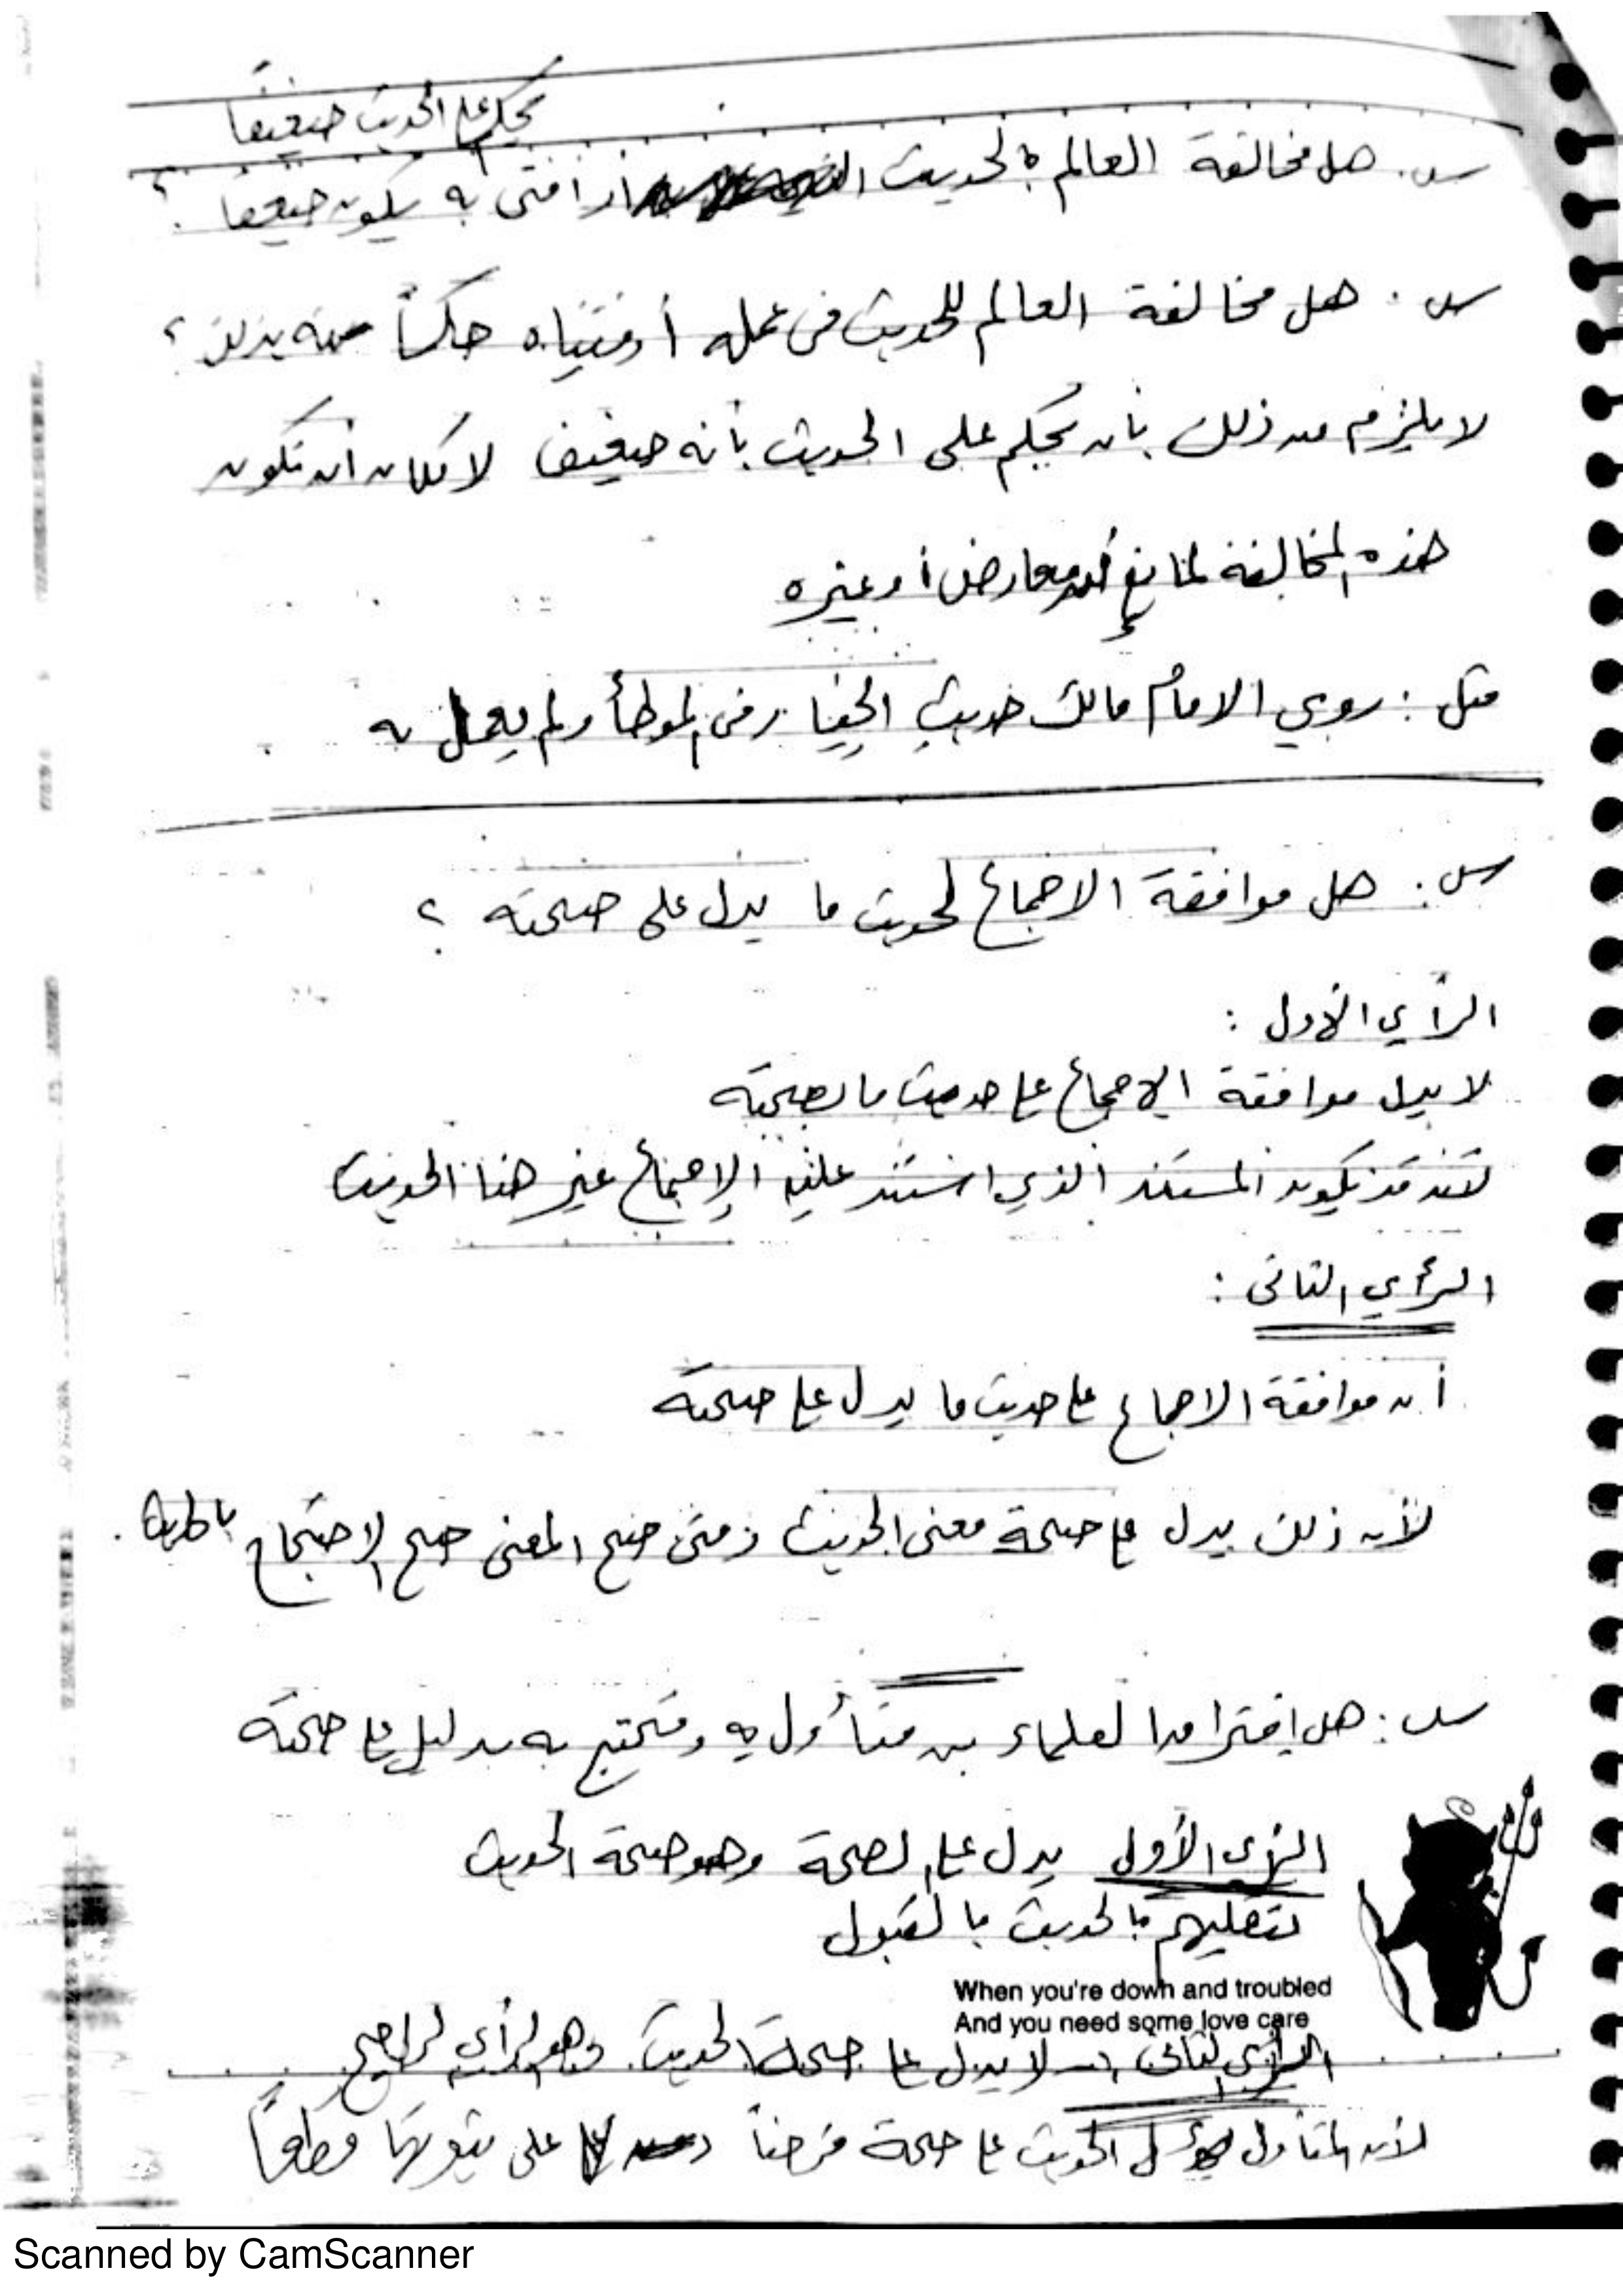 يحكم على الحديث ضعيفاً
س. هل مخالفة العالم بالحديث اذا افتى به يكون ضعيفا ؟
س. هل مخالفة العالم للحديث في عمله أو فتياه حكماً منه بذلك ؟
لا يلزم من ذلك بأن يحكم على الحديث بأنه ضعيف لامكان ان تكون
هذه المخالفة لمانع معارض أو غيره
مثل : روي الامام مالك حديث الخيار في الموطأ ولم يعمل به
س. هل موافقة الاجماع لحديث ما يدل على صحته ؟
الرأي الأول :
لا يدل موافقة الاجماع على حديث ما بصحته
قد يكون المستند الذي استند عليه الإجماع غير هذا الحديث
الرأي الثاني :
أن موافقة الاجماع على حديث ما يدل على صحته
لأن ذلك يدل على صحة معنى الحديث ومتى صح المعنى صح الاحتجاج بالحديث .
س : هل افتراق العلماء بين متأول به ومحتج به يدل على صحته
الرأي الأول يدل على الصحة وهو صحة الحديث
بالحديث بالقبول
When you're down and troubled
And you need some love care
الرأي الثاني لا يدل على صحة الحديث وهو الرأي الراجح
لأن المتأول الحديث على صحة فرضاً على ثبوتها قطعاً
Scanned by CamScanner